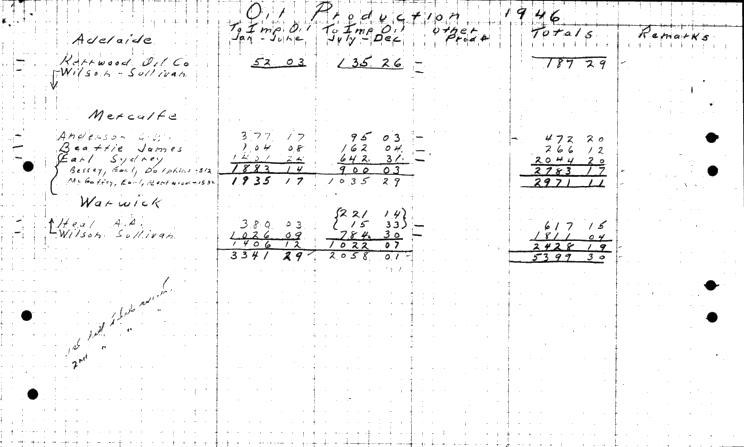 Oil Production 1946
To Imp. Oil Jan - June To Imp. Oil July - Dec Other Prod'n Totals Remarks
Adelaide
Kerrwood Oil Co 52 03 135 26 - 187 29
Wilson - Sullivan -
Metcalfe
Anderson 377 17 95 03 - 472 20
Beattie James 104 08 162 04 - 266 12
Earl Sydney 642 31 - 2044 20
1883 14 900 03 2783 17
1935 17 1035 29 2971 11
Warwick
{221 14}
Heal A.A. 380 03 {15 33} - 617 15
Wilson Sullivan 1026 09 784 30 - 1811 04
1406 12 1022 07 2428 19
3341 29 2058 01 5399 30
1st half
2nd " " "